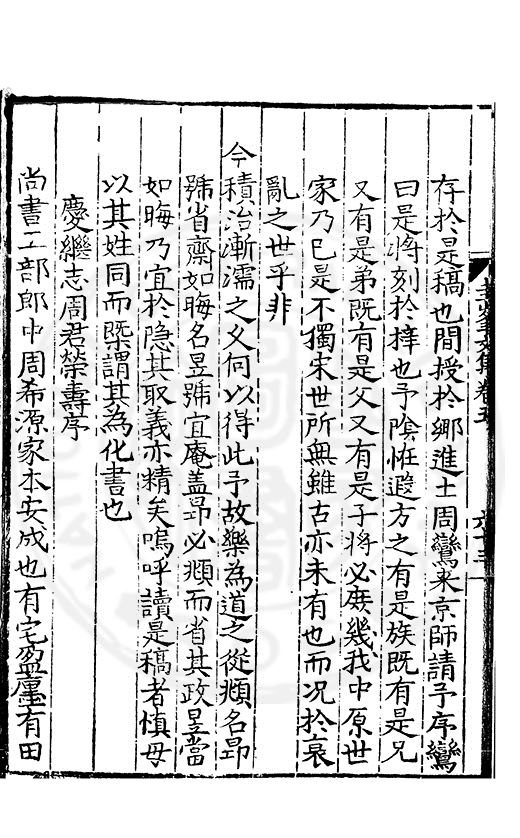 存於是稿也間授於鄉進士周鸞來京師請予序鸞
曰是將刻於梓也予陰恠遐方之有是族既有是兄
又有是弟既有是父又有是子將必庶幾我中原世
家乃已是不獨宋世所無雖古亦未有也而况於衰
亂之世乎非
今積治漸濡之乆何以得此予故樂為道之從顒名昴
號省齋如晦名昱號宜庵盖昴必顒而省其政昱當
如晦乃宜於隐其取義亦精矣嗚呼讀是稿者慎毋
以其姓同而槩謂其為化書也
慶繼志周君榮壽序
尚書工部郎中周希源家本安成也有宅盈廛有田
文集卷五
六十三